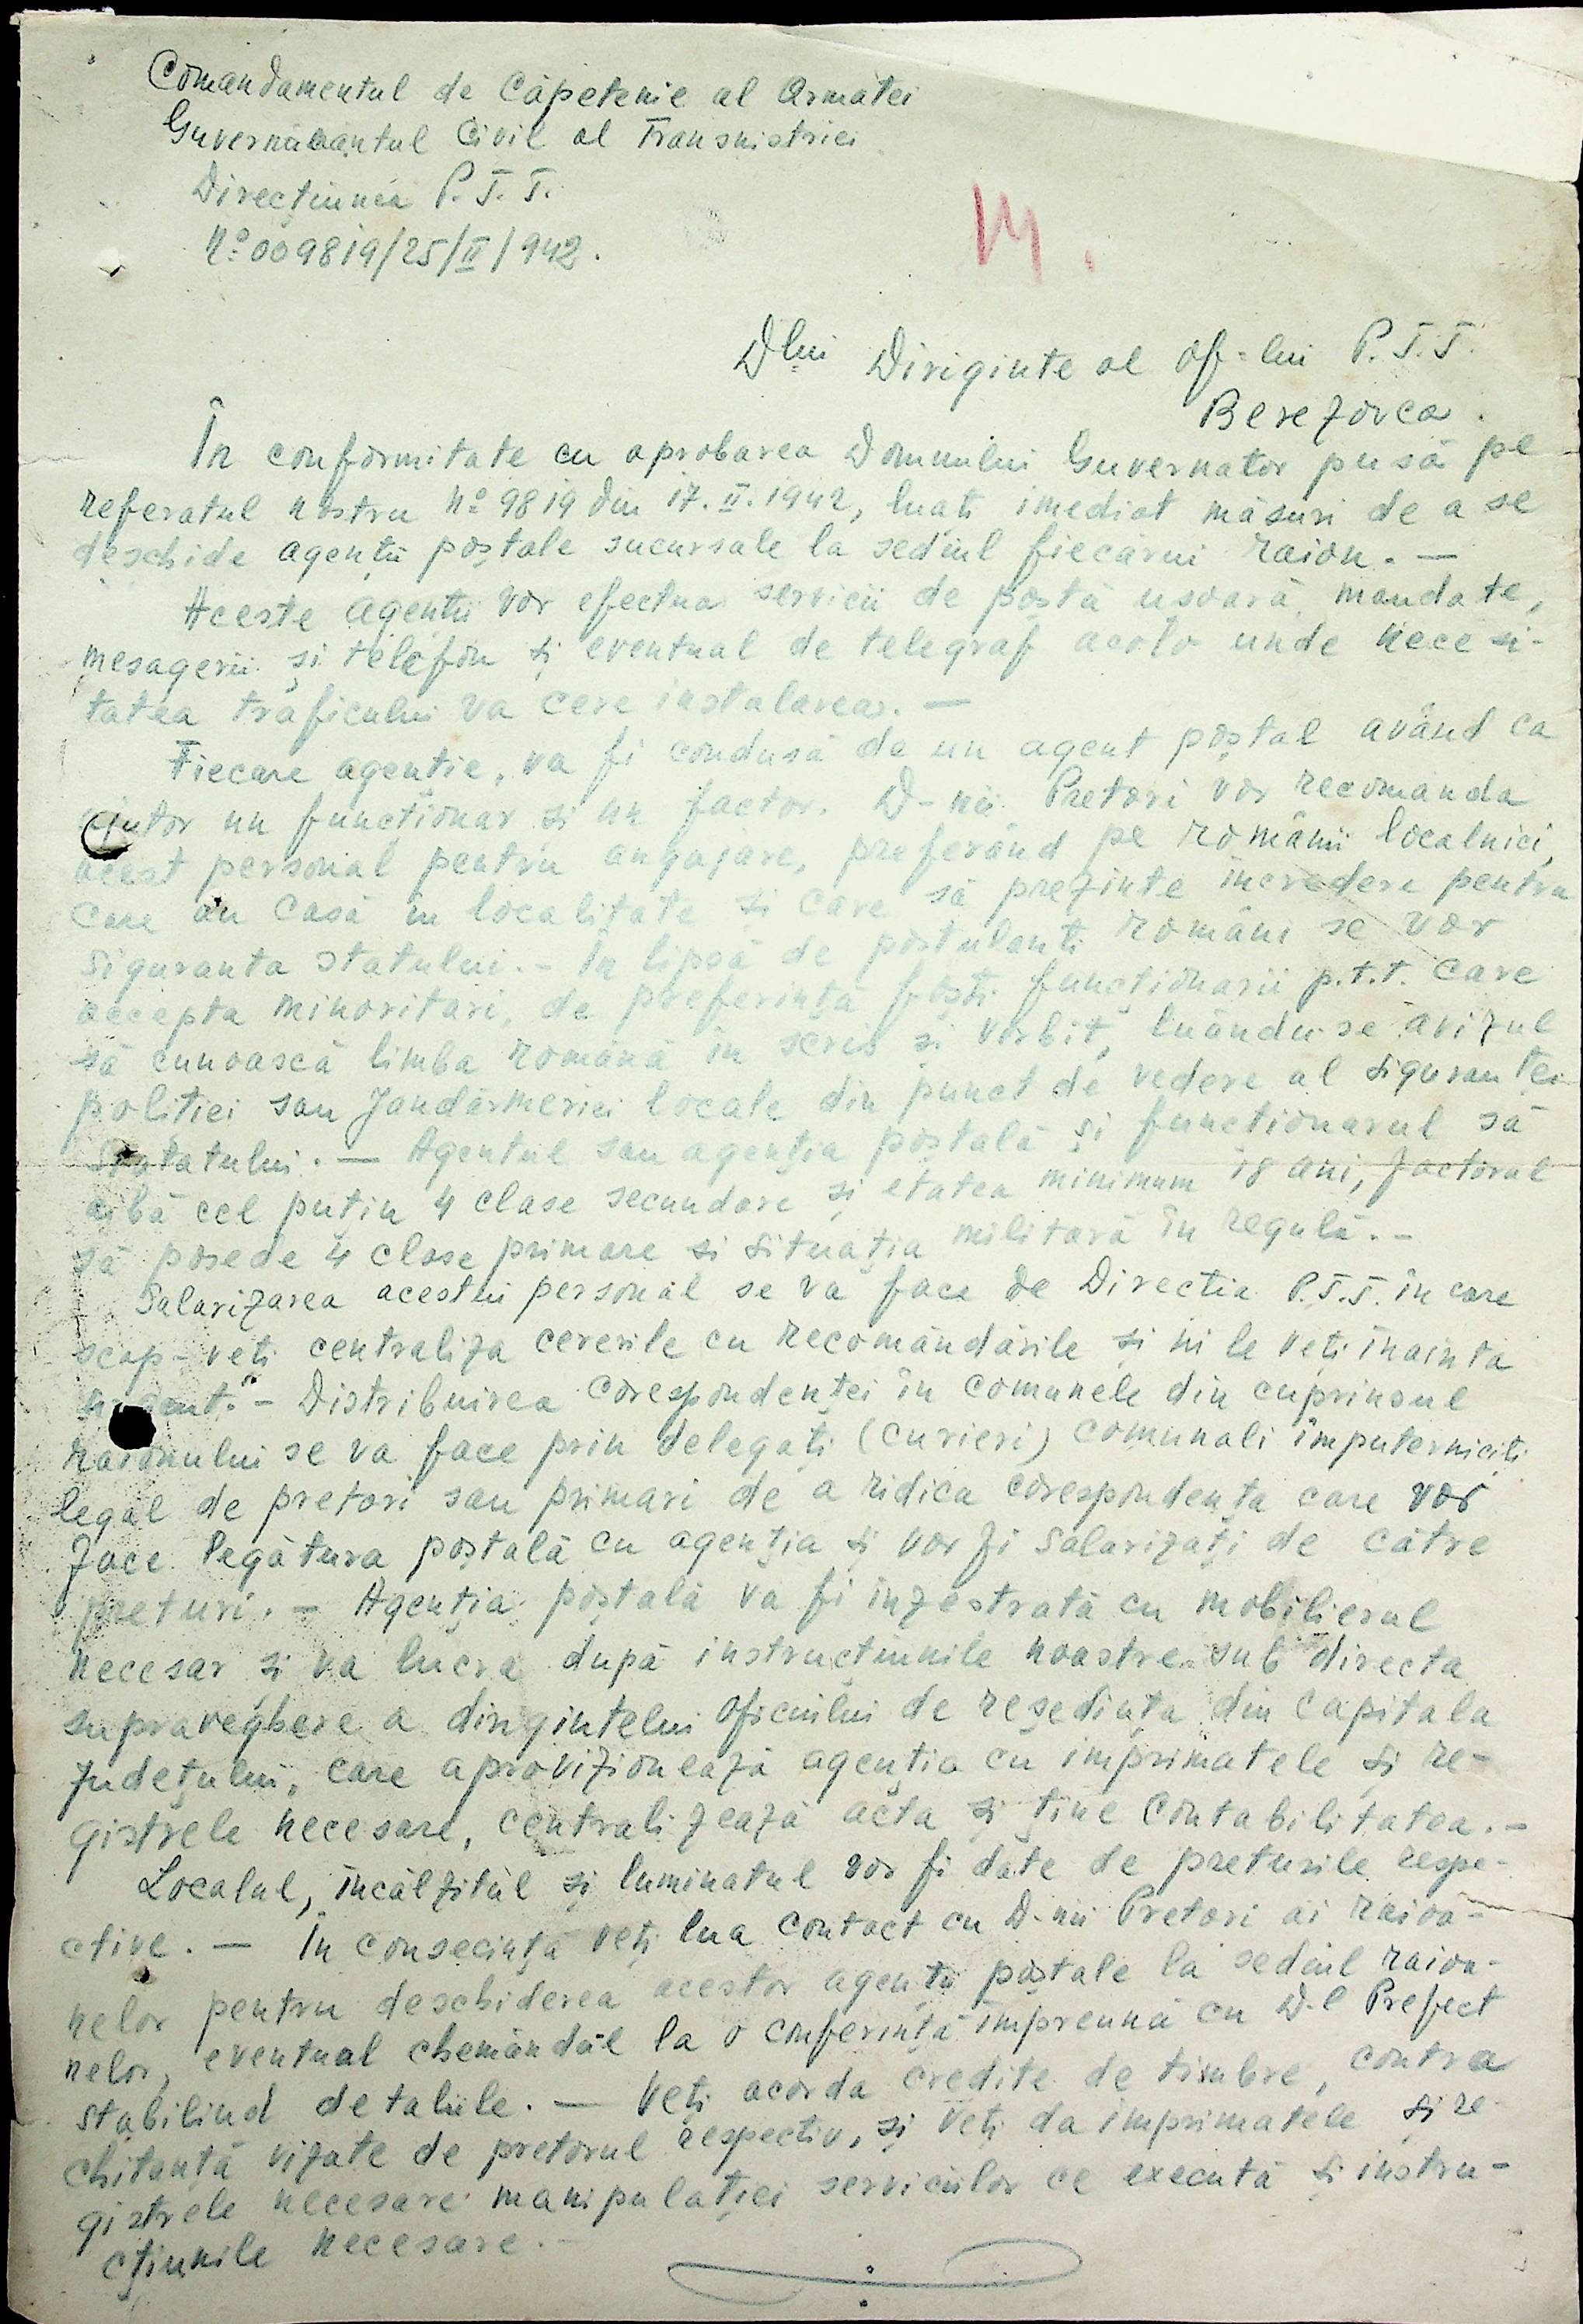 Comandamentul de Căpetenie al Armatei
Guvernământul Civil al Transnistriei
Direcțiunea P.T.T.
Nº 009819/25/II/942.
14.
Dlui Diriginte al of=lui P.T.T.
Berezovca.
În conformitate cu aprobarea Domnului Guvernator pusă pe
referatul nostru Nº 9819 din 17.II.1942, luați imediat măsuri de a se
deschide agenții poștale sucursale la sediul fiecărui raion. —
Aceste agenții vor efectua servicii de poștă ușoară, mandate,
mesagerii și telefon și eventual de telegraf acolo unde necesi-
tatea traficului va cere instalarea. —
Fiecare agenție, va fi condusă de un agent poștal având ca
ajutor un funcționar și un factor. D-nii Pretori vor recomanda
acest personal pentru angajare, preferând pe românii localnici,
care au casă în localitate și care să prezinte încredere pentru
Siguranta statului. – In lipsă de postulanți români se vor
accepta minoritari, de preferință foști funcționarii p.t.t. care
să cunoască limba română în scris și vorbit, luându-se avizul
politiei sau Jandarmeriei locale din punct de vedere al siguranței
Statului. — Agentul sau agenția poștală și funcționarul să
aibă cel puțin 4 clase secundare și etatea minimum 18 ani, factorul
să posede 4 clase primare și situația militară în regulă. –
Salarizarea acestui personal se va face de Directia P.T.T. în care
scop – veți centraliza cererile cu recomandările și ni le veți înainta
urgent. – Distribuirea corespondenței în comunele din cuprinsul
raionului se va face prin delegați (curieri) comunali împuterniciți
legal de pretori sau primari de a ridica corespondența care vor
face legătura poștală cu agenția și vor fi salarizați de către
preturi. – Agenția poștală va fi înzestrată cu mobilierul
necesar și va lucra după instrucțiunile noastre sub directa
supraveghere a dirigintelui oficiului de reședința din capitala
județului, care aprovizionează agenția cu imprimatele și re-
gistrele necesare, centralizează acta și ține contabilitatea. –
Localul, încălzitul și luminatul vor fi date de preturile respe-
ctive. — În consecința veți lua contact cu D-nii Pretori ai raioa-
nelor pentru deschiderea acestor agenții poștale la sediul raioa-
nelor, eventual chemându-i la o conferință împreună cu D-l Prefect
stabilind detaliile. — Veți acorda credite de timbre, contra
chitanță vizate de pretorul respectiv, și veți da imprimatele și re-
gistrele necesare manipulației serviciilor ce execută și instru-
cțiunile necesare. –